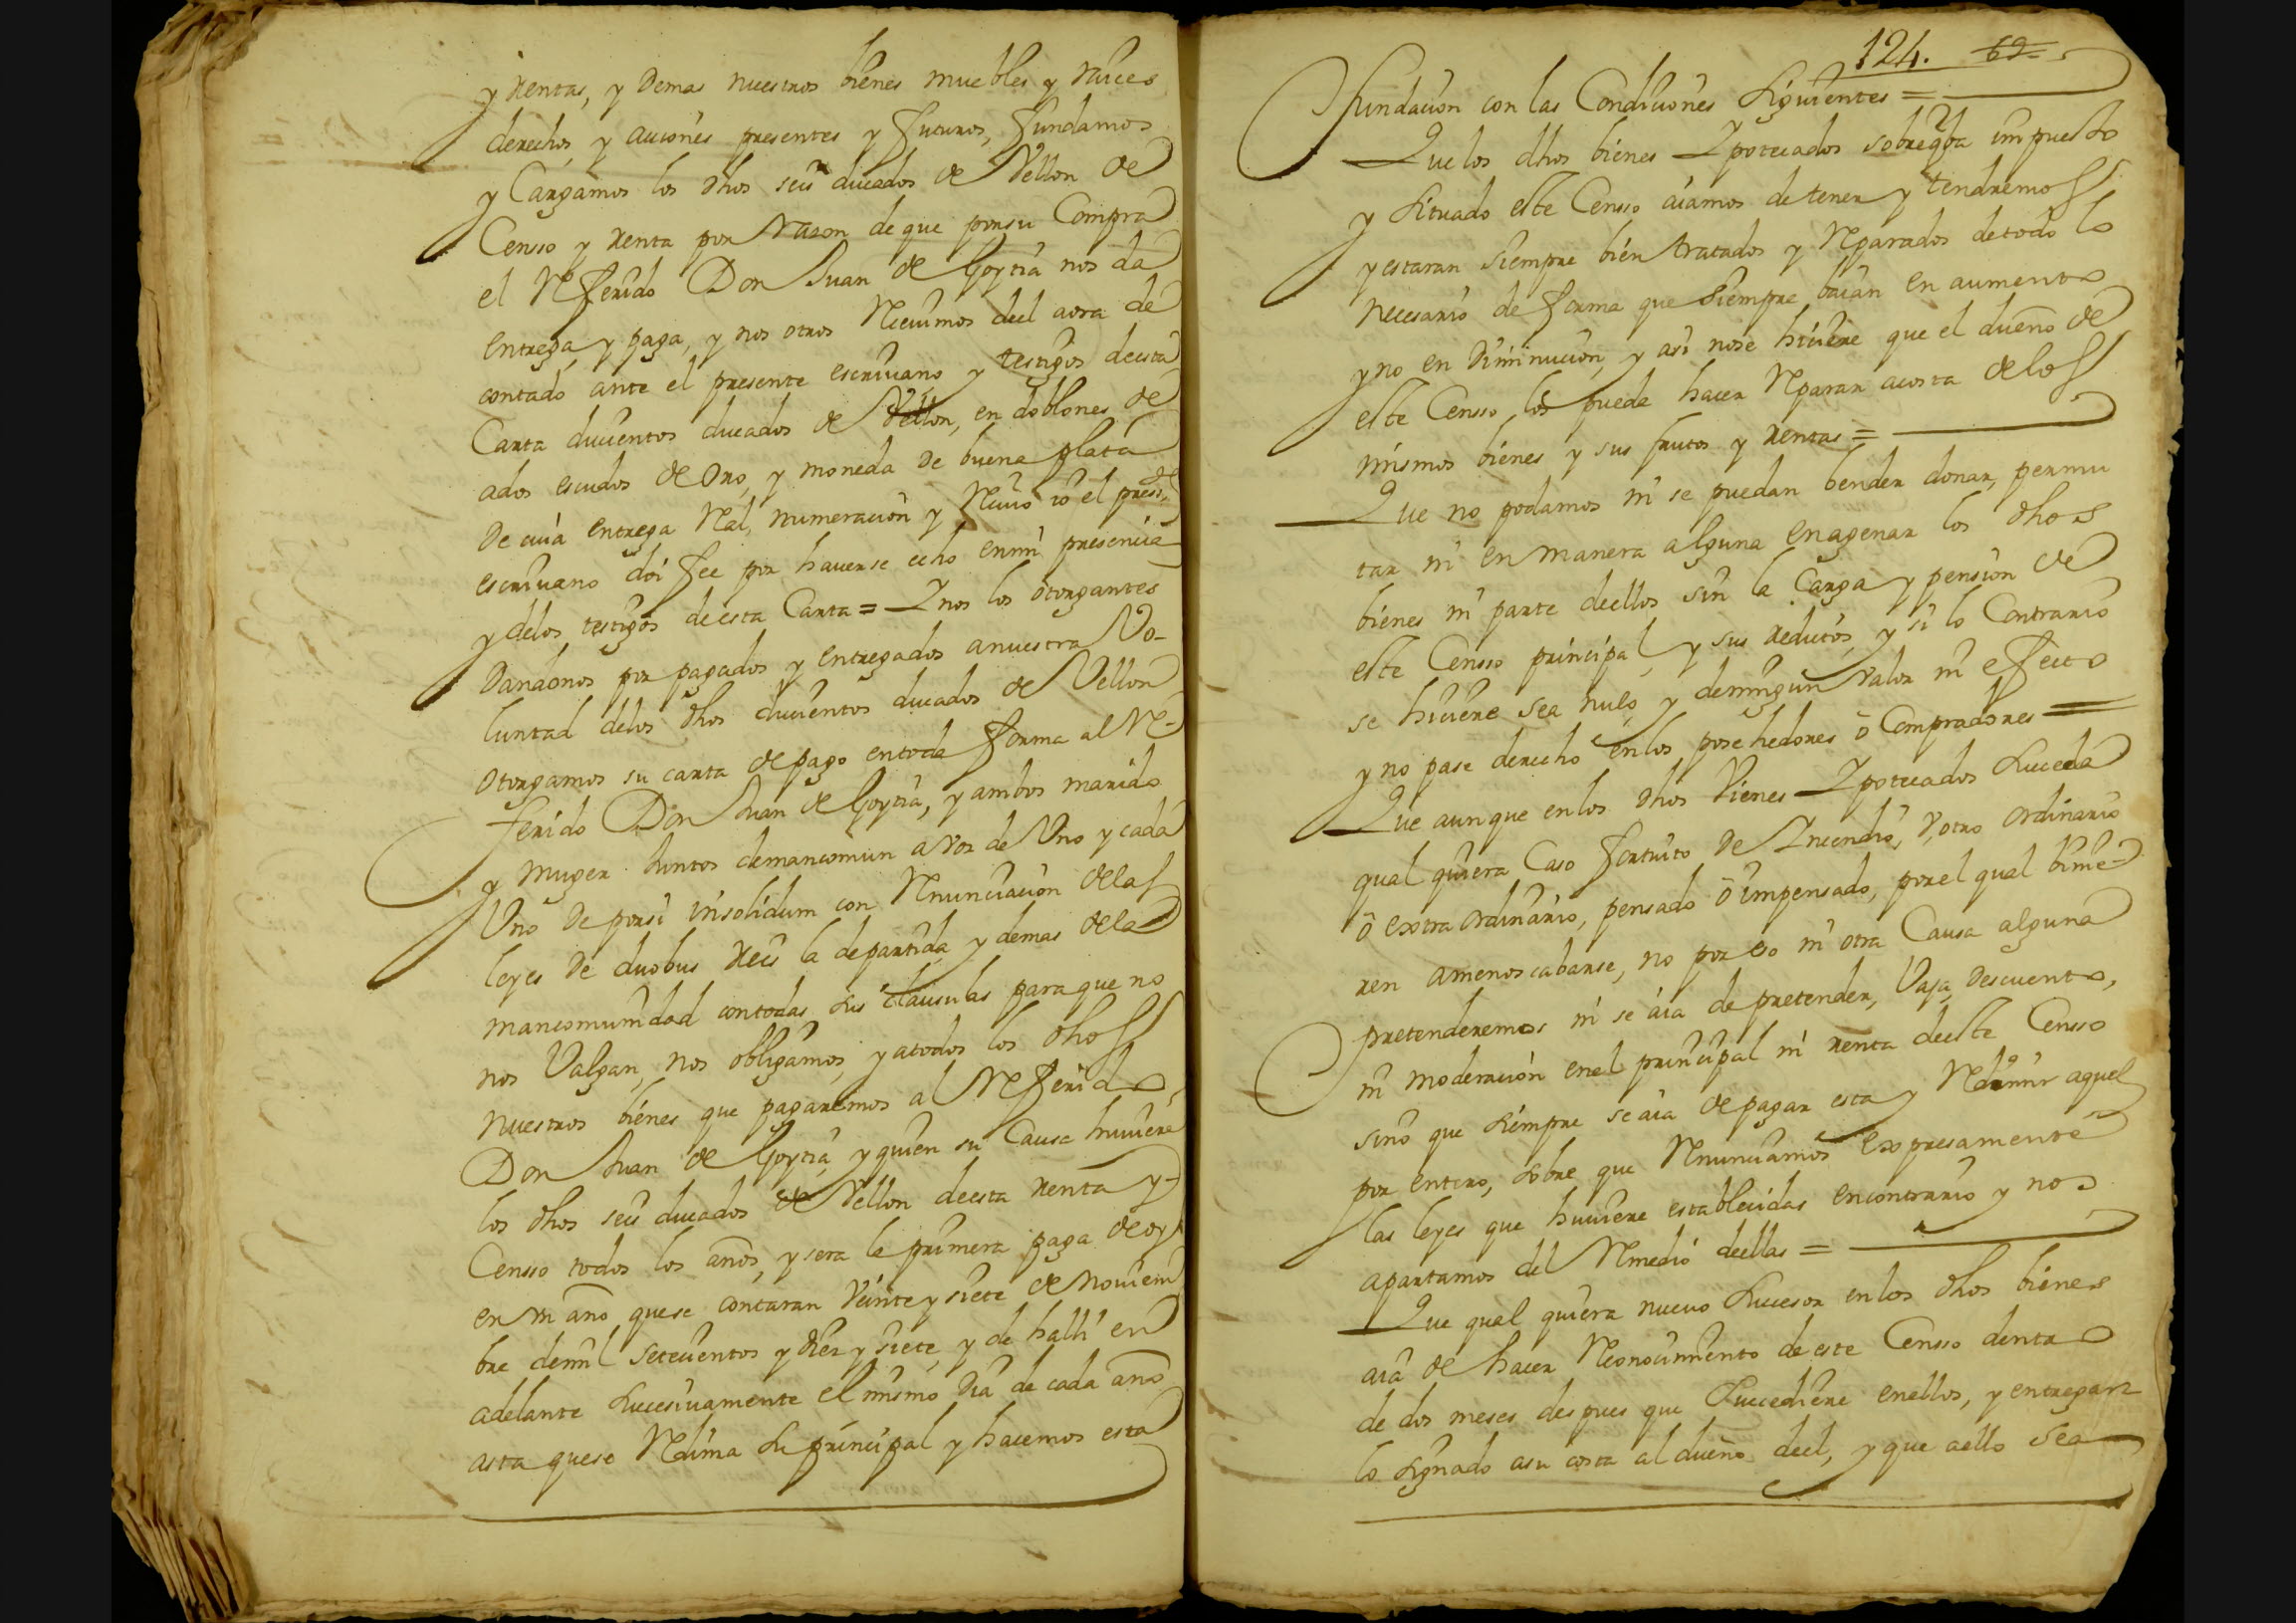 y rentas, y demas nuestros bienes muebles y raices
derechos y acciones presentes y futuros, fundamos
y Cargamos los dhos seis ducados de Vellon de
Censso y renta por razon de que por su Compra
el Referido Don Juan de Goytia nos da
entrega y paga, y nos otros Recivimos del aora de
contado ante el presente escrivano y testigos de esta
Carta ducientos ducados de Vellon, en doblones de
ados escudos de oro, y moneda de buena plata
de cuia entrega Real, numeracion y Recivo io el presste
escrivano doi fee por haverse echo en mi presencia
y de los testigos de esta Carta = Y nos los otorgantes
Dandonos por pagados y entregados a nuestra Vo-
luntad de los dhos ducientos ducados de Vellon
otorgamos su carta de pago en toda forma al Re-
ferido Don Juan de Goytia, y ambos marido
y Muger Juntos de mancomun a voz de Uno y cada
Uno de por si insolidum con Renunciacion de las
leyes de duobus reis la de partida y demas de la
mancomunidad con todas sus clausulas para que no
nos Valgan, nos obligamos, y a todos los dhos
nuestros bienes que pagaremos al Referido
Don Juan de Goytia y quien su Causa huviere
los dhos seis ducados de Vellon de esta renta y
Censso todos los años, y sera la primera paga de oy
en un año que se contaran Veinte y siete de Noviem
bre de mil setecientos y diez y siete, y de halli en
adelante sucesivamente el mismo dia de cada año
asta que se Redima su principal y hacemos esta
124. 69
fundacion con las Condiciones siguientes =
Que los dhos bienes Ypotecados sobre q ba impuesto
y situado este Censso aiamos de tener y tendremos
y estaran siempre bien tratados y Reparados de todo lo
necesario de forma que siempre baian en aumento
y no en diminucion, y asi no se hiciere que el dueño de
este Censso los pueda hacer Reparar a costa de los
mismos bienes y sus frutos y rentas =
Que no podamos ni se puedan bender donar, permu
tar ni en manera alguna enagenar los dhos
bienes ni parte de ellos sin la Carga y pension de
este Censso principal, y sus reditos, y si lo Contrario
se hiciere sea nulo, y de ningun valor ni efecto
y no pase derecho en los posehedores ô Compradores =
Que aunque en los dhos Vienes Ypotecados suceda
qual quiera Caso fortuito de Yncendio, v, otro ordinario
ô extra ordinario, pensado ô impensado, por el qual binie-
ren a menoscabarse, no por eso ni otra Causa alguna
pretenderemos ni se aia de pretender, Vaja, descuento,
ni moderacion en el principal ni renta de este Censso
sino que siempre se aia de pagar esta y Redimir aquel
por entero, sobre que Renunciamos expresamente
las leyes que huviere establecidas en contrario y nos
apartamos del Remedio de ellas =
Que qual quiera nuevo sucesor en los dhos bienes
aia de hacer Reconocimiento de este Censso dentro
de dos meses despues que succediere en ellos, y entregar
lo signado a su costa al dueño de el, y que a ello sea